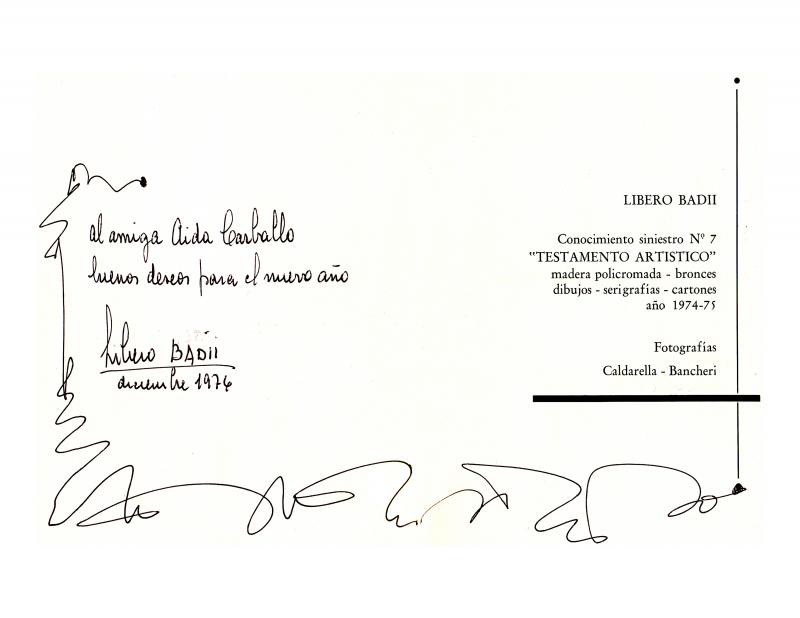 al amiga Aida Carballo
buenos deseos para el nuevo año
Libero BADII
diciembre 1976
LIBERO BADII
Conocimiento siniestro Nº 7
"TESTAMENTO ARTISTICO"
madera policromada - bronces
dibujos - serigrafías - cartones
año 1974-75
Fotografías
Caldarella - Bancheri